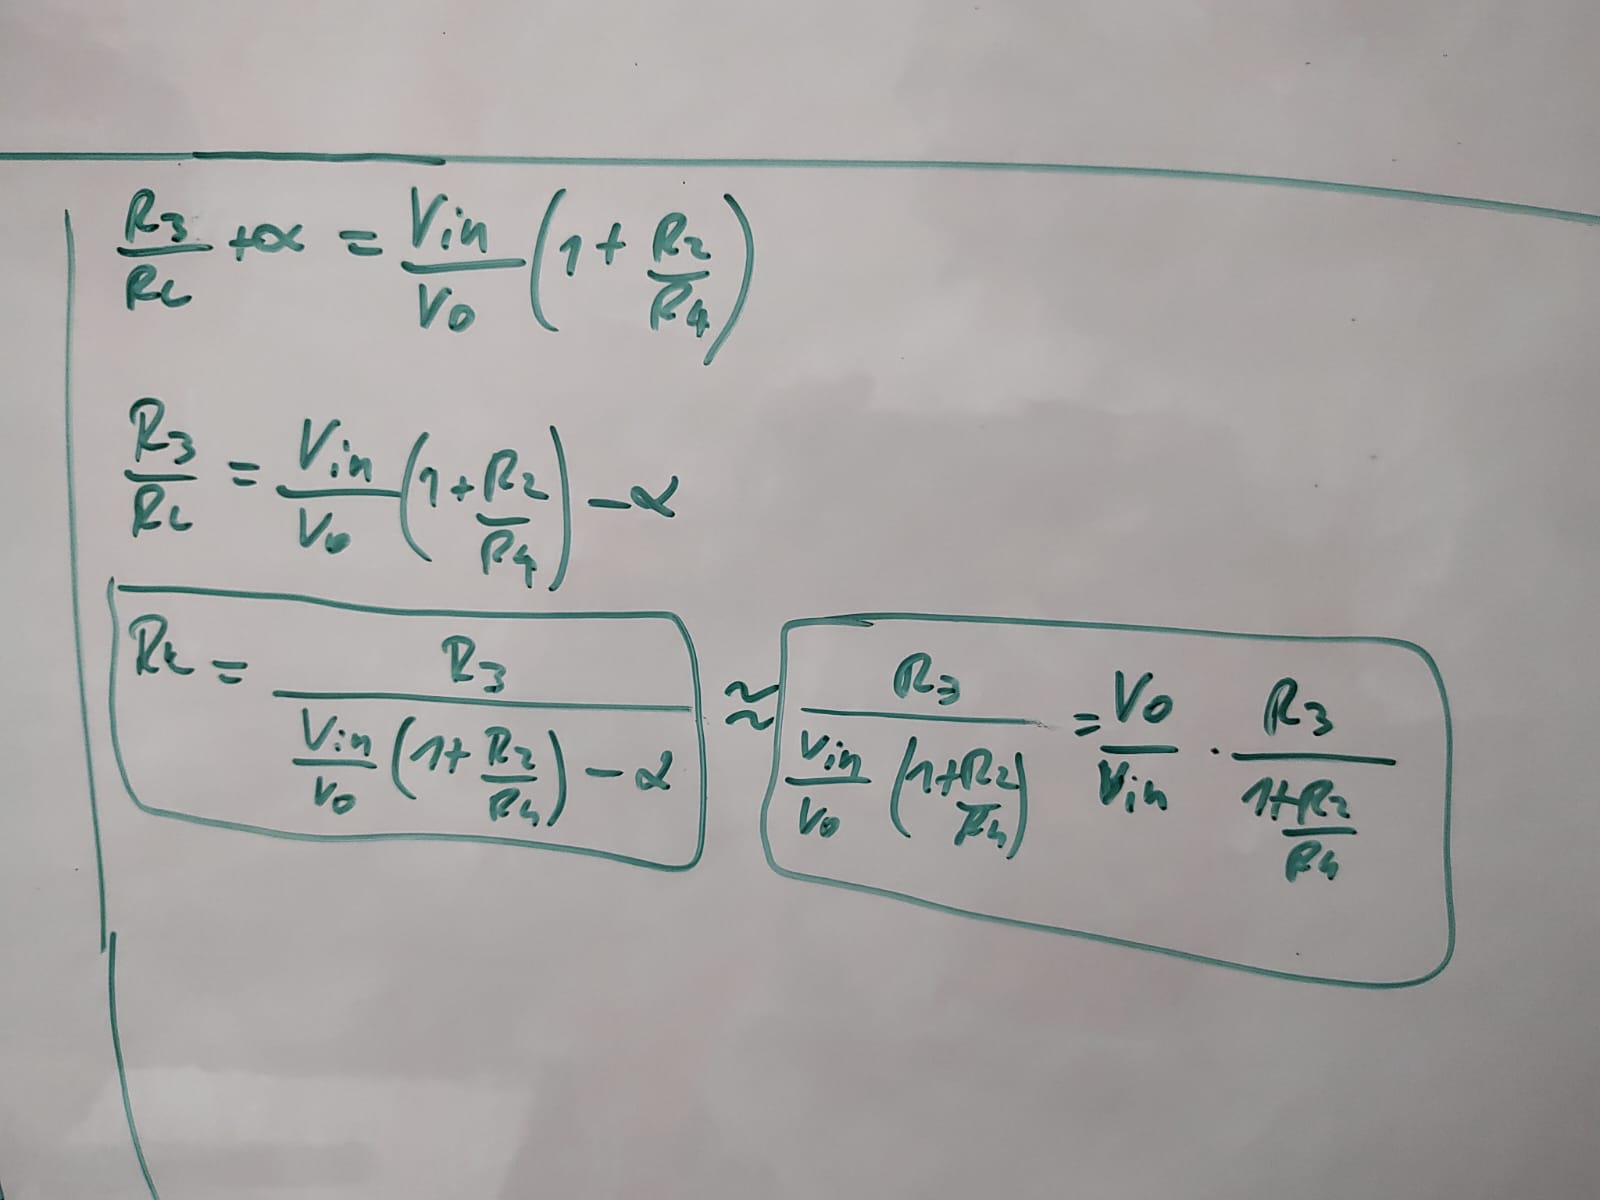 R3/RL + α = Vin/Vo (1 + R2/R4)
R3/RL = Vin/Vo (1 + R2/R4) - α
RL = R3 / (Vin/Vo (1 + R2/R4) - α) ≈ R3 / (Vin/Vo (1 + R2/R4)) = Vo/Vin · R3 / (1 + R2/R4)